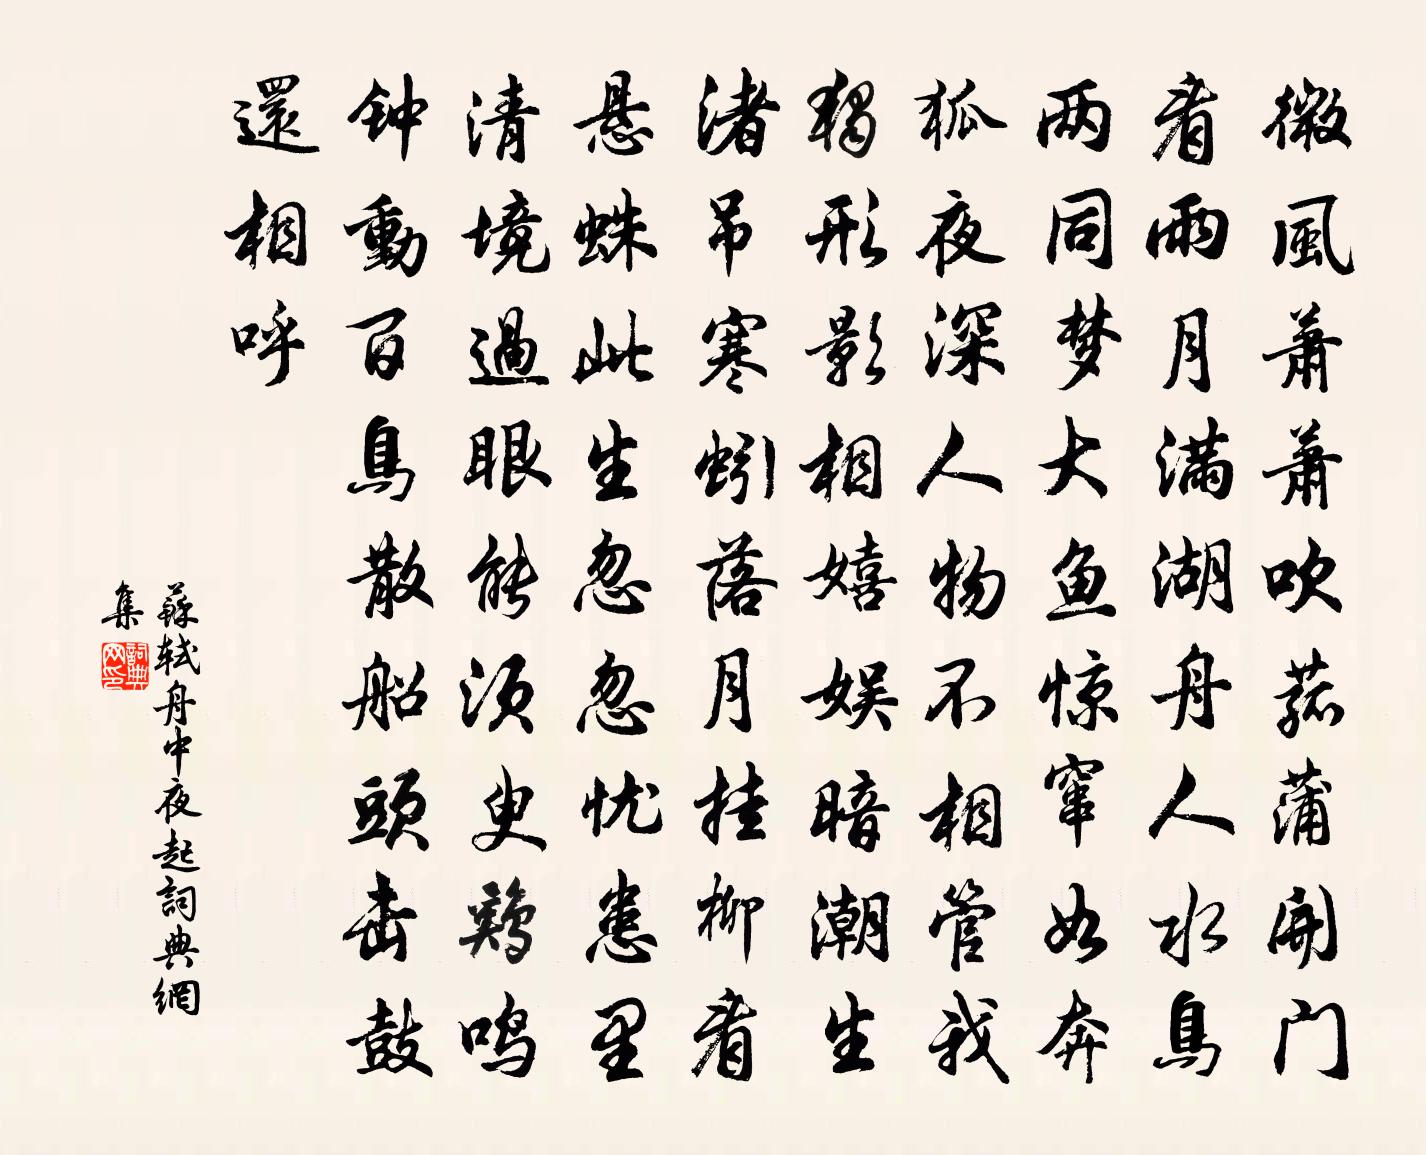 微風蕭蕭吹菰蒲開门
看雨月满湖舟人水鳥
两同梦大鱼惊窜如奔
狐夜深人物不相管我
獨形影相嬉娱暗潮生
渚吊寒蚓落月挂柳看
悬蛛此生忽忽忧患里
清境過眼能须臾鷄鸣
钟動百鳥散船頭击鼓
還相呼
蘇軾舟中夜起詞典網
集
詞典网印